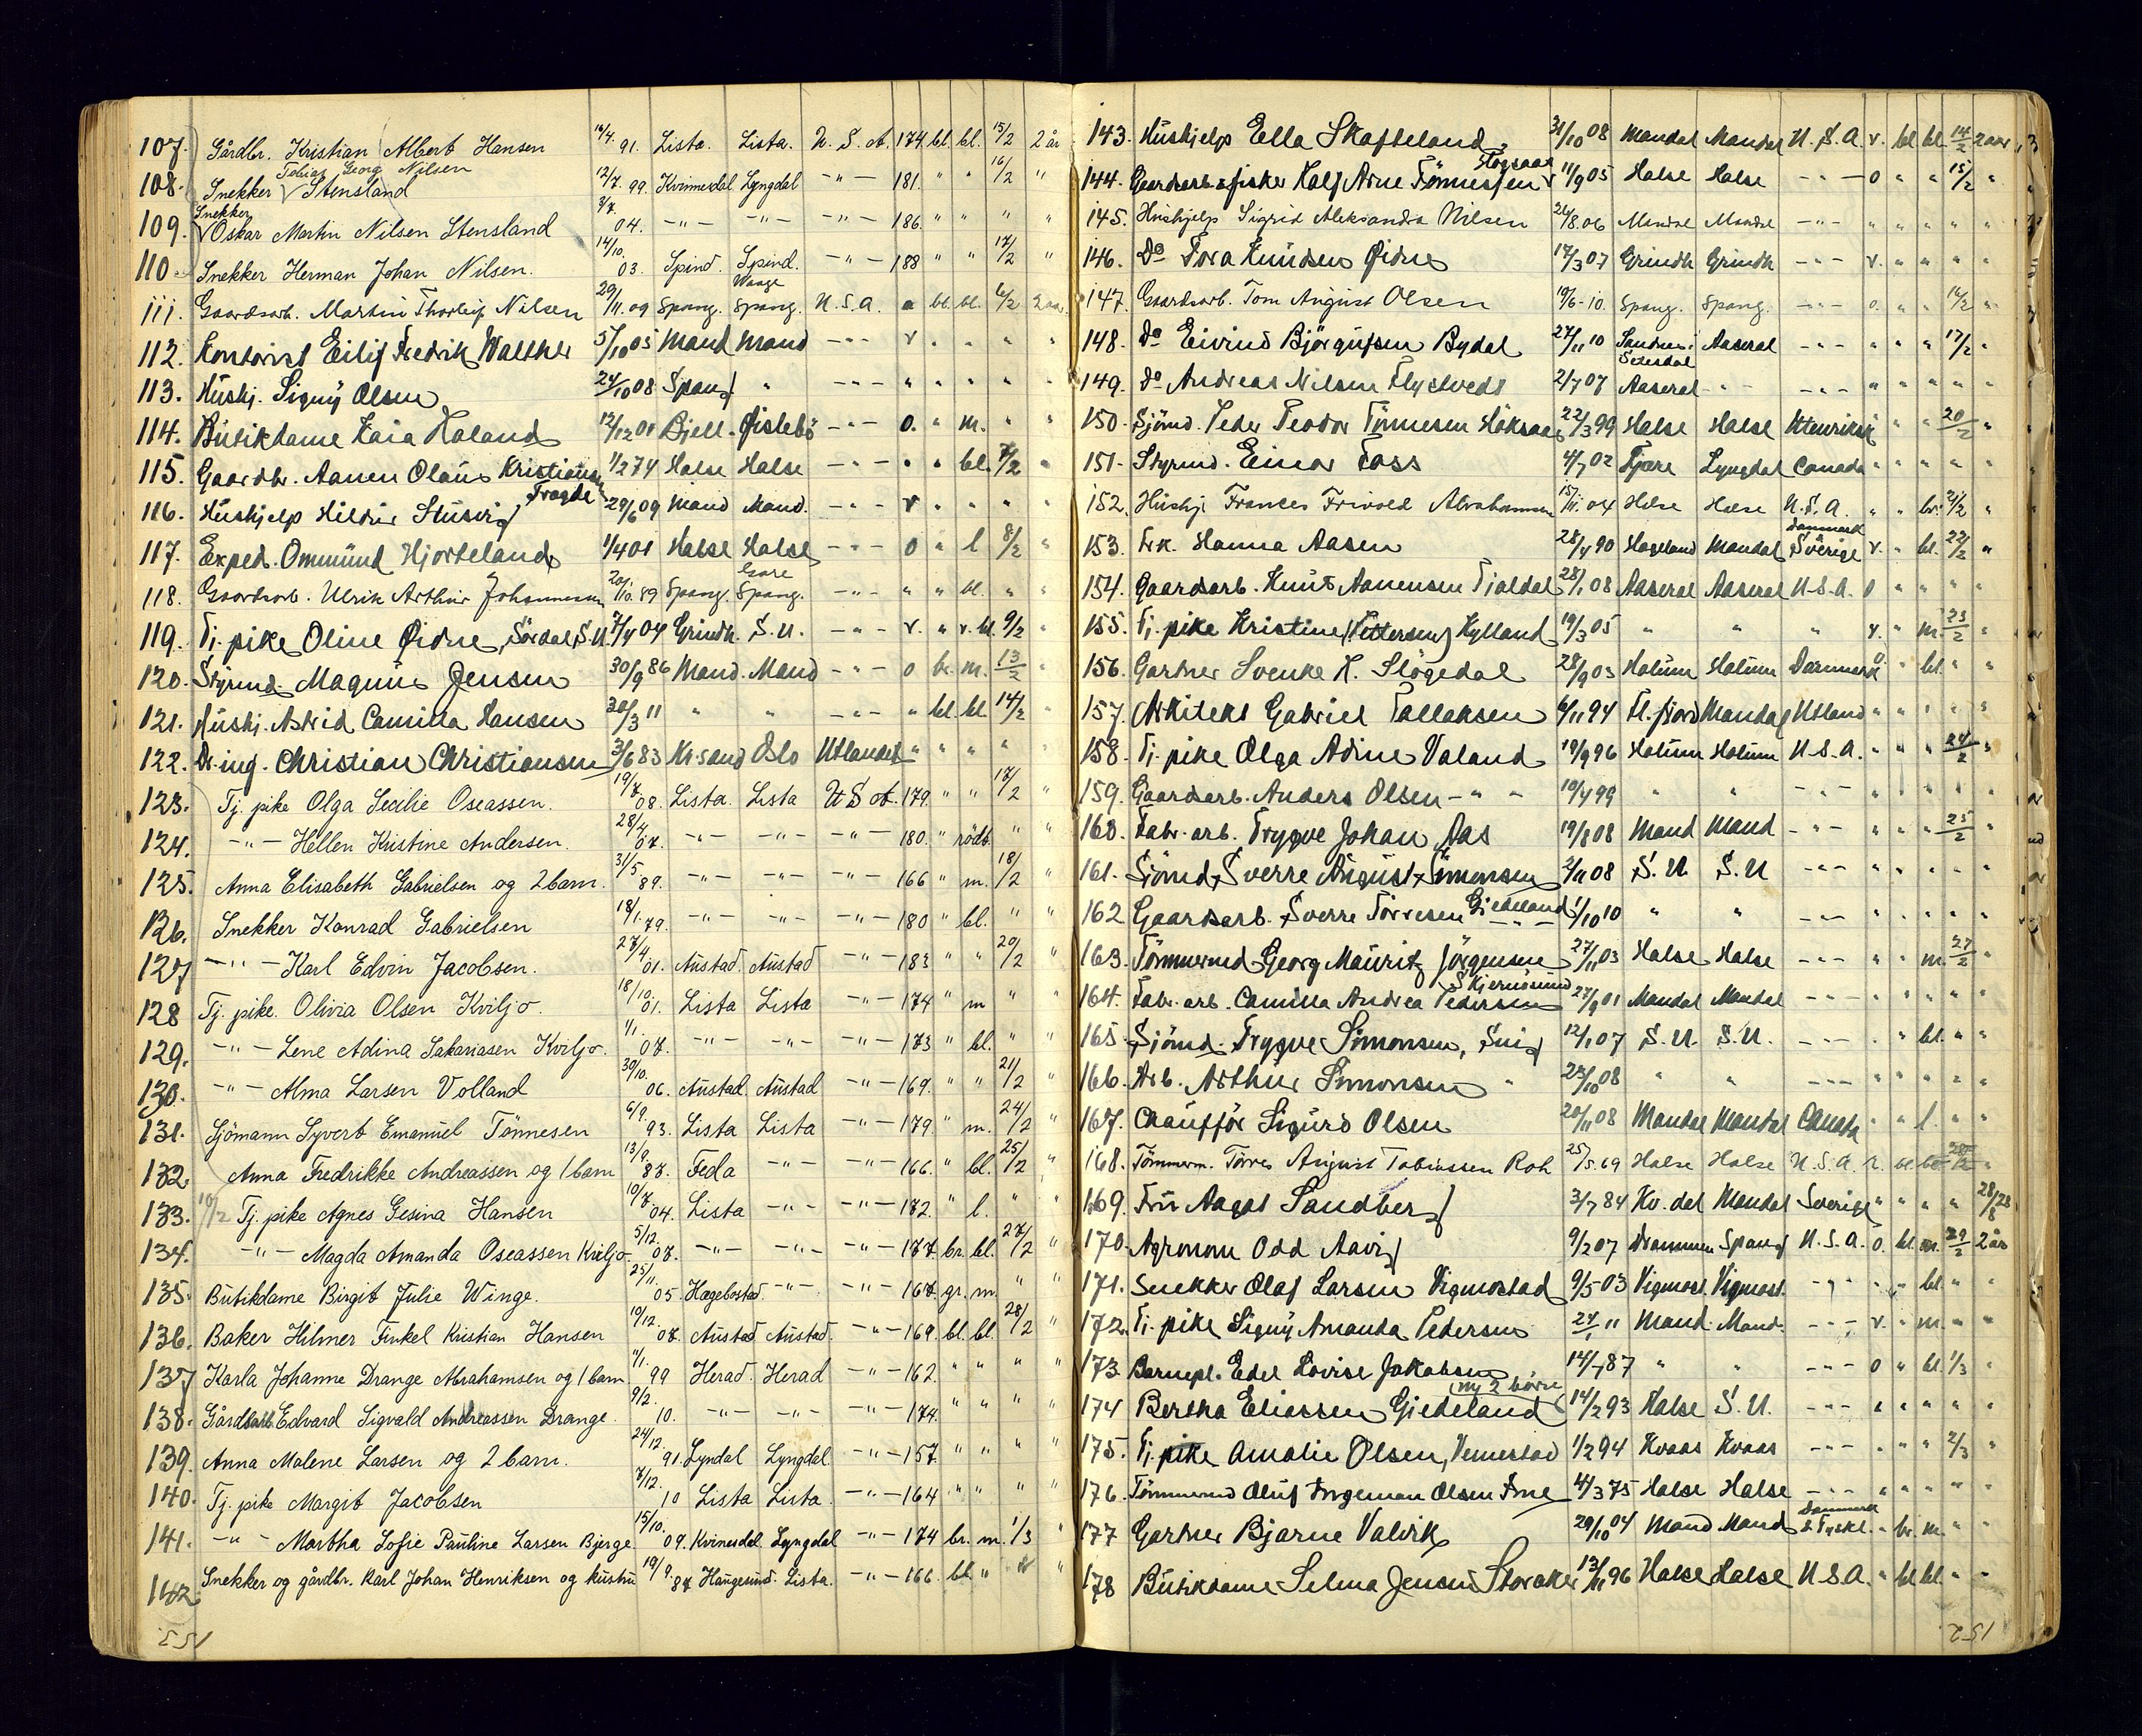 107. Gårdbr. Kristian Albert Hansen 16/4. 91. Lista. Lista. U. S. at. 174. bl. bl. 15/2 2 år
108. Snekker Tobias Georg Nilsen Stensland 12/7. 99. Kvinesdal Lyngdal -"- 181. " " 16/2 "
109. Snekker Oskar Martin Nilsen Stensland 3/7. 04. -"- -"- -"- 186. " " " "
110. Snekker Herman Johan Nilsen. 14/10. 03. Spind. Spind. -"- 188 " " 17/2 "
111. Gaardsarb. Martin Thorleif Nilsen 29/11.09 Spang. Waage Spang. U.S.A. bl. bl. 6/2 2 aar.
112. Kontorist Eilif Fredrik Walther 5/10 05 Mand Mand -"- v " " " "
113. Hushj. Signy Olsen 24/10 08 Spang " -"- " " " " "
114. Butikdame Kaia Haaland 12/12 01 Bjell. Øislebö -"- o. " m. " "
115. Gaardbr. Aanen Olaus Kristiansen Tregde 1/2 74 Halse Halse -"- " " bl. 7/2 "
116. Hushjelp Hildur Stusvig 29/6 09 Mand Mand. -"- v " " " "
117. Exped. Ommund Hjorteland 1/4 01 Halse Halse -"- o " l 8/2 "
118. Gaardsarb. Ulrik Arthur Johannessen 20/10. 89 Spang. Gare Spang. -"- " " bl. " "
119. Tj. pike Oline Øidne, Sördal, S.U. 7/4 04 Grindh. S.U. -"- v. " v.bl. 9/2 "
120. Styrmd. Magnus Jensen 30/9 86 Mand. Mand -"- o br. m. 13/2 "
121. Hushj. Astrid Camilla Hansen 30/3 11 " " -"- " bl bl. 14/2 "
122. Dr. ing. Christian Christiansen 3/6 83 Kr.sand Oslo Utlandet " " " "
123. Tj. pike Olga Secilie Oseassen. 19/7. 08. Lista. Lista U S at. 179. " " 17/2 "
124. -"- Hellen Kristine Andersen. 28/4 07. -"- -"- -"- 180. " rödb. " "
125. Anna Elisabeth Gabrielsen og 2 barn. 31/5 89. -"- -"- -"- 166 " m. 18/2 "
126. Snekker Konrad Gabrielsen 18/1. 79. -"- -"- -"- 180 " bl. " "
127 -"- Karl Edvin Jacobsen. 27/4 01. Austad. Austad -"- 183 " " 20/2 "
128 Tj. pike. Olivia Olsen Kviljo. 18/10. 01. Lista Lista -"- 174 " m " "
129. -"- Lene Adina Sakariasen Kviljo. 1/1. 07. -"- -"- -"- 173 " bl. " "
130. -"- Alma Larsen Volland 30/10. 06. Austad. Austad -"- 169. " " 21/2 "
131. Sjömann Syvert Emanuel Tönnesen 6/9. 93. Lista Lista -"- 179. " m. 24/2 "
132. Anna Fredrikke Andreassen og 1 barn 13/9. 87. Feda -"- -"- 166. " bl. 25/2 "
133. Tj. pike Agnes Gesina Hansen 10/7 04. Lista -"- -"- 172. " l. " "
134. -"- Magda Amanda Oseassen Kviljo. 5/12. 07. -"- -"- -"- 177. br. bl. 27/2 "
135. Butikdame Birgit Julie Winge. 25/11. 05. Hægebostad. -"- -"- 167. gr. m. " "
136. Baker Hilmer Tinkel Kristian Hansen 10/12. 07. Austad Austad. -"- 169. bl. bl. 28/2 "
137 Karla Johanne Drange Abrahamsen og 1 barn. 7/1. 99 Herad. Herad -"- 162. " " " "
138. Gårdsarb. Edvard Sigvald Andreassen Drange. 9/2. 10. -"- -"- -"- 174. " " " "
139. Anna Malene Larsen og 2 barn. 24/12. 91. Lyndal Lyngdal. -"- 157. " " " "
140. Tj. pike Margit Jacobsen 7/12. 10 Lista Lista. -"- 164 " " " "
141. -"- Martha Sofie Pauline Larsen Bjerge. 15/10. 09. Kvinesdal Lyngdal -"- 174 br. m. 1/3 "
142 Snekker og gårdbr. Karl Johan Henriksen og hustru 19/9. 87 Haugesund. Lista. -"- 166. bl. " " "
143. Hushjelp Ella Skafteland 31/10 08 Mandal Mandal U.S.A. v. bl bl. 14/2 2 aar
144. Gaardsarb. & fisker Kalf Arne Tönnessen 11/9 05 Halse Halse -"- o " " 15/2 "
145. Hushjelp Sigrid Aleksandra Nilsen 26/8.06 Mandal Mandal -"- " " " " "
146. Do Tora Knudsen Øidne 17/3 07 Grindh Grindh -"- v. " " " "
147. Gaardsarb. Tom August Olsen 19/6-10. Spang. Spang. -"- o. " " 16/2 "
148. Do Eivind Björgufsen Bydal 27/11 10 Sandnes i Setesdal Aaseral -"- " " " 17/2 "
149. do Andreas Nilsen Flystvedt 2/7 07 Aaseral -"- -"- " " " " "
150. Sjömd. Peder Teodor Tönnesen Höksaas 22/3 99 Halse Halse Utenriks " " " 20/2 "
151. Styrmd. Einar Foss 4/7 02 Fjære Lyngdal Canada " " " " "
152. Hushj. Frances Frivold Abrahamsen 15/11. 04 Halse Halse U.S.A. " " br. 21/2 "
153. Frk. Hanna Aasen 28/4 90 Hægeland Mandal Danmark Sverige v. " bl. 22/2 "
154. Gaardsarb. Knut Aanensen Tjaldal 28/1 08 Aaseral Aaseral U.S.A. o " " " "
155. Tj. pike Kristine (Pettersen) Kylland 19/3 05 " " " v. " m. 23/2 "
156. Gartner Svenke K. Slögedal 28/9 03 Holum Holum Danmark o. " bl. " "
157. Arkitekt Gabriel Tallaksen 6/11 94 Fl.fjord Mandal Utland " " " " "
158. Tj. pike Olga Adine Valand 19/9 96 Holum Holum U.S.A. " " " 24/2 "
159. Gaardsarb. Anders Olsen -"- 19/4 99 " " -"- " " " " "
160. Fabr. arb. Trygve Johan Aas 19/8 08 Mand Mand -"- " " " 25/2 "
161. Sjömd. Sverre August Simonsen 2/11 08 S.U. S.U -"- " " " " "
162 Gaardsarb. Sverre Törresen Giedeland 1/10 10 " " -"- " " " " "
163. Tömmermd Georg Mauritz Jörgensen 27/11 03 Halse Halse -"- " " m. 27/2 "
164. Fabr. arb. Camilla Andrea Pedersen Skjernösund 27/9 01 Mandal Mandal -"- " " " " "
165. Sjömd. Trygve Simonsen, Snig 12/1 07 S.U. S.U. -"- " " bl. " "
166. Arb. Arthur Simonsen " 23/10 08 " " -"- " " " " "
167. Chaufför Sigurd Olsen 20/11 08 Mandal Mandal Canada " " l. " "
168. Tömmerm. Törres August Tobiassen Roh 25/5.69 Halse Halse U.S.A. bl
169. Fru Aagot Sandberg 3/7 84 Kv.dal Mandal Sverige " " " " 28/8 28
170. Agronom Odd Aavig 9/2 07 Drammen Spang U.S.A. o. bl. m. 29/2 2 år
171. Snekker Olaf Larsen Vigmostad 9/5 03 Vigmost. Vigmost. -"- " " bl. " "
172. Tj. pike Signy Amanda Pedersen 24/1 11 Mand. Mand. -"- v. " m. " "
173 Barnepl. Edel Lovise Jakobsen 14/7 87 " " -"- o " bl. 1/3 "
174 Bertha Eliassen Giedeland (m/ 2 börn) 14/2 93 Halse S.U. -"- " " " " "
175. Tj. pike Amalie Olsen, Vemestad 1/2 94 Kvaas Kvaas -"- " " " 2/3 "
176. Tömmermd Oluf Ingeman Olsen Ime 4/3 75 Halse Halse -"- " " " " "
177 Gartner Bjarne Valvik 29/10 04 Mand Mand Danmark & Tyskl. " br. m. " "
178 Butikdame Selma Jensen Storaker 13/11 96 Halse Halse U.S.A. " bl bl. " "